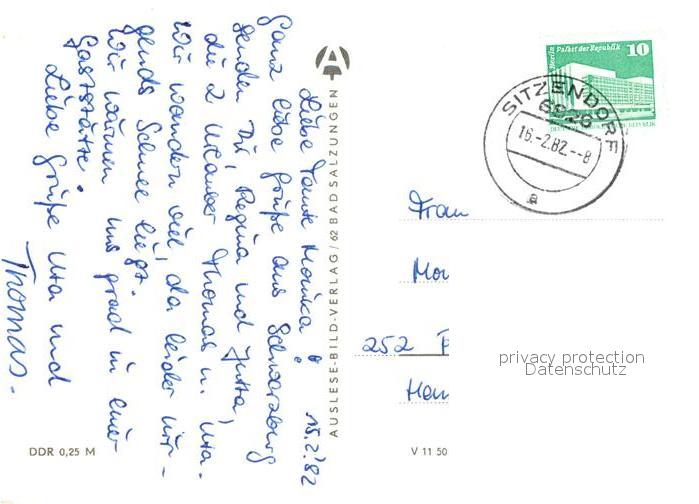 Liebe Tante Monika! 15.2.'82
Ganz liebe Grüße aus Schwarzburg
senden Dir, Regina und Jutta,
die 2 Urlauber Thomas u. Uta.
Wir wandern viel, da leider nir-
gends Schnee liegt.
Wir wärmen uns grad in einer
Gaststätte.
Liebe Grüße Uta und
Thomas.
AUSLESE-BILD-VERLAG / 62 BAD SALZUNGEN
A
DDR 0,25 M
V 11 50
Berlin Palast der Republik 10
DEUTSCHE DEMOKRATISCHE REPUBLIK
SITZENDORF
6826
16.-2.82.--8
a
Frau
Mon
252
privacy protection
Datenschutz